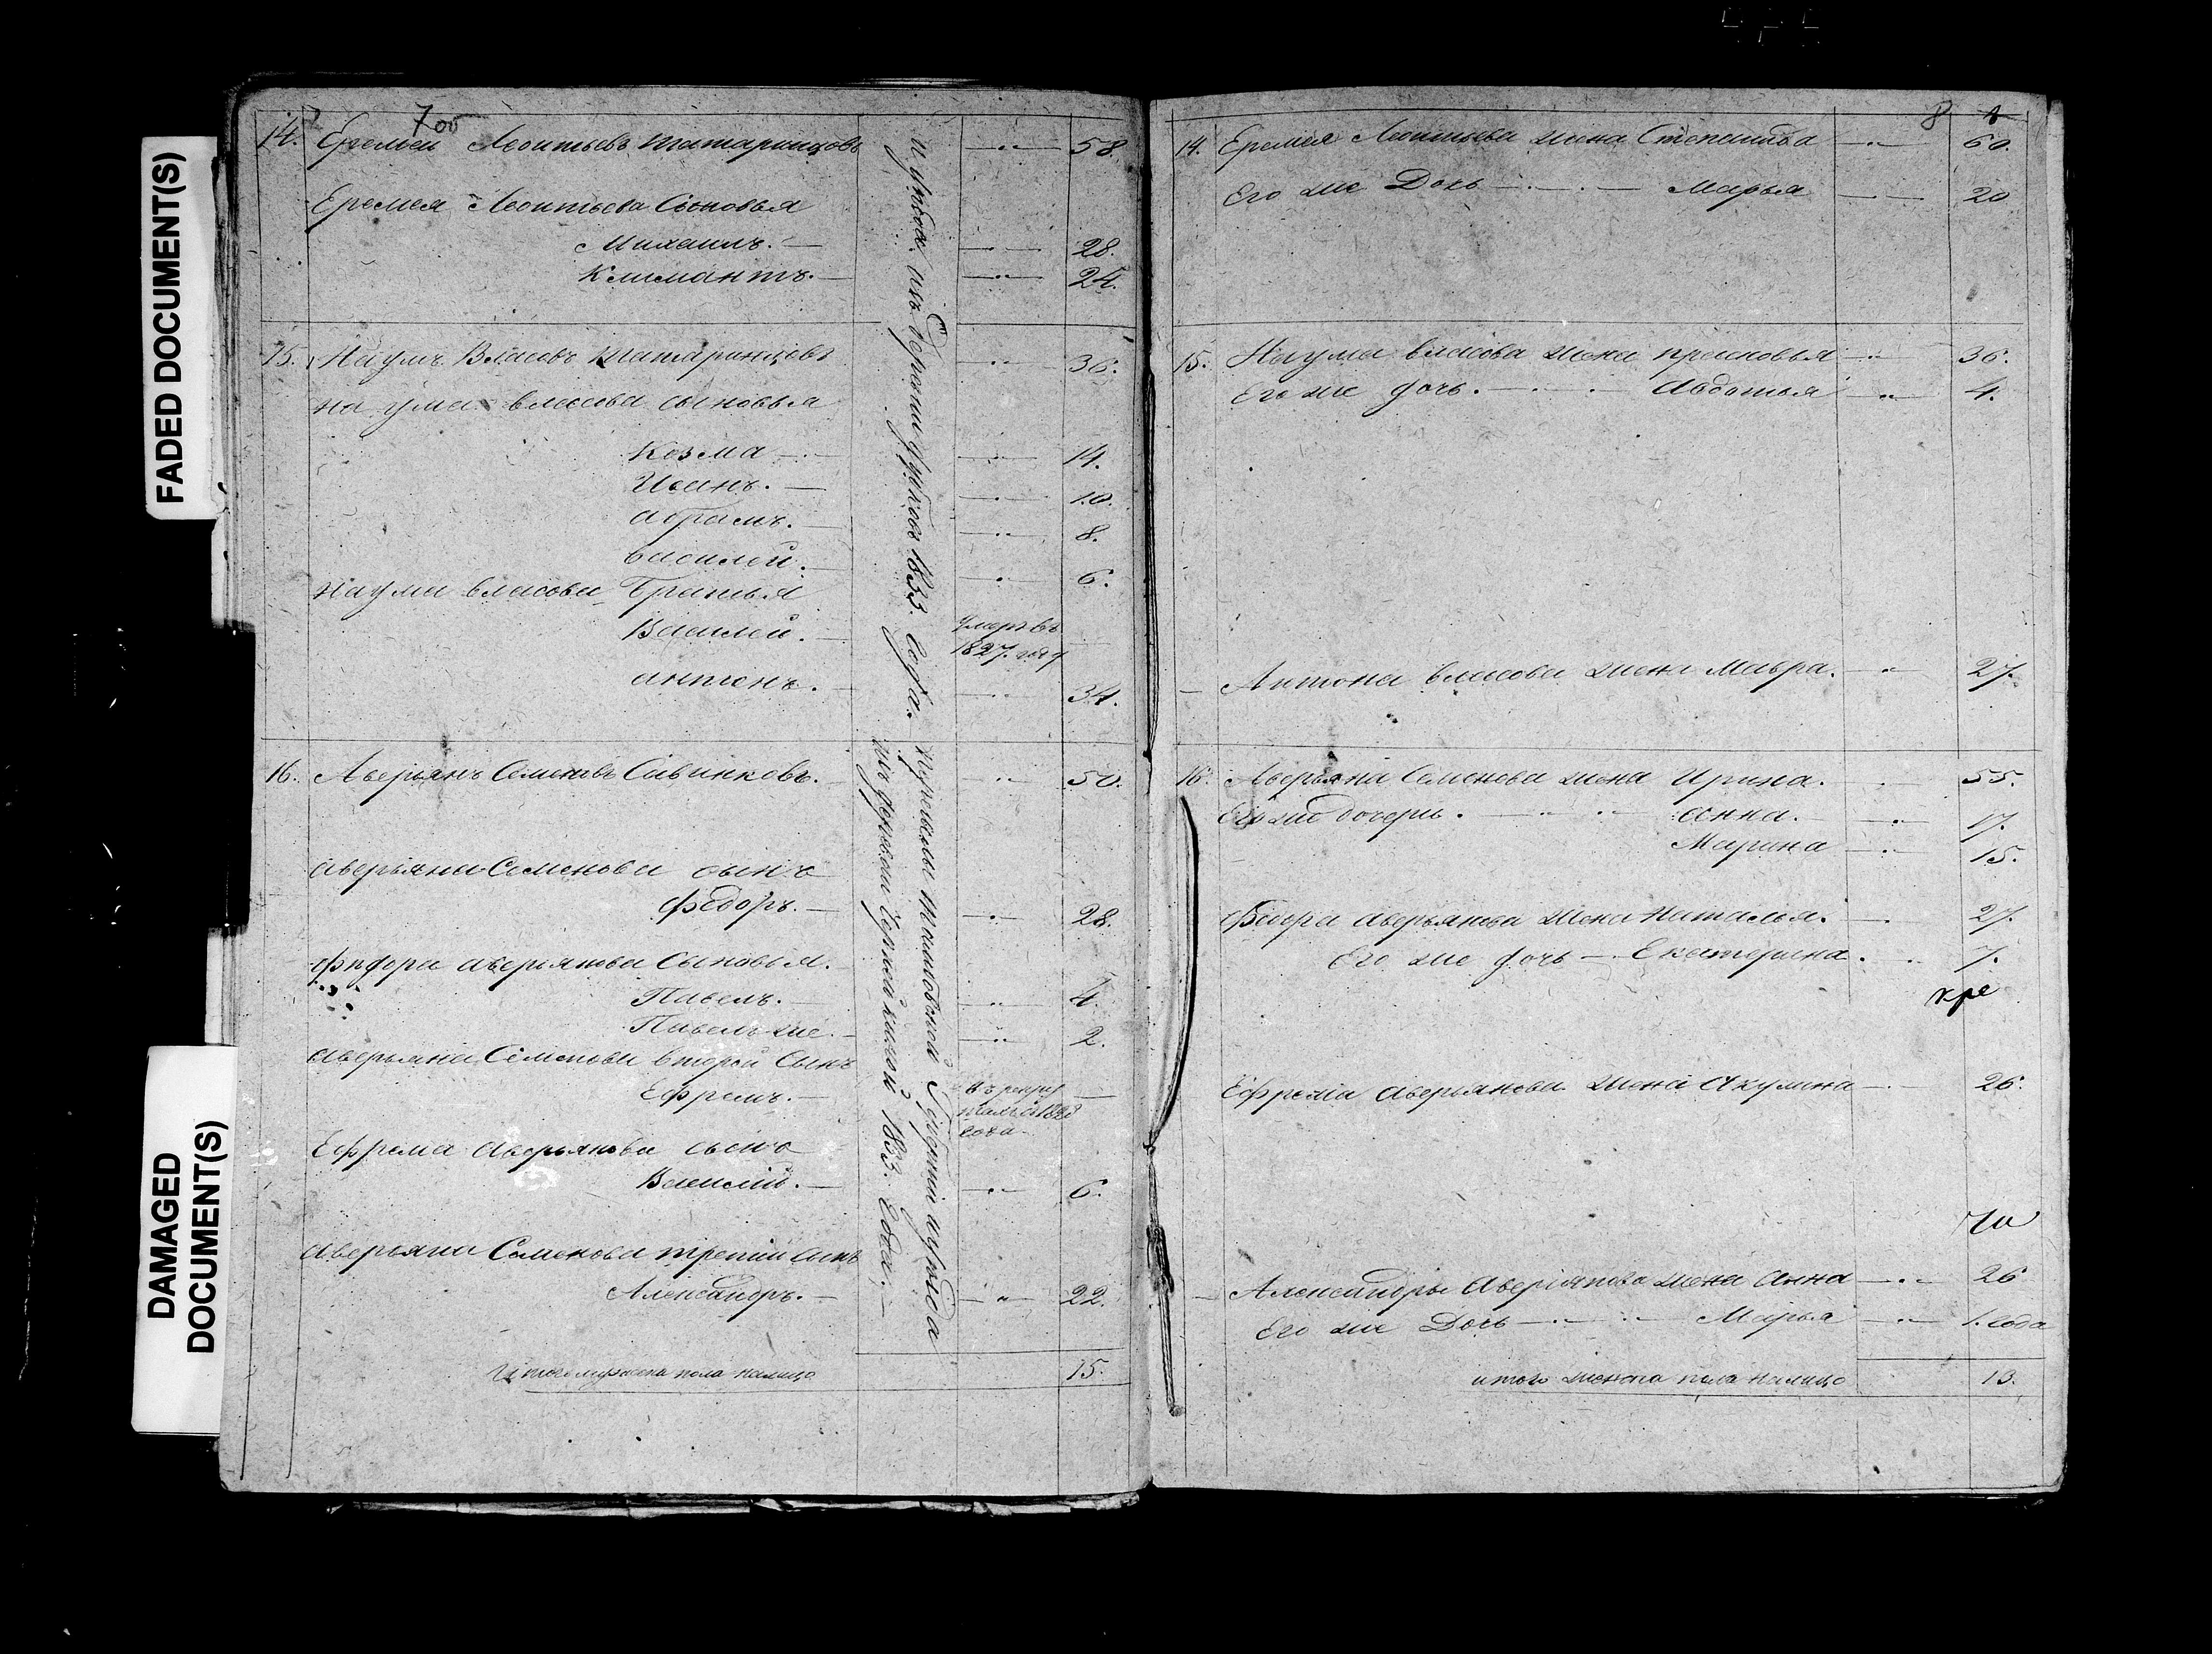 FADED DOCUMENT(S)
DAMAGED
DOCUMENT(S)
7об
14. Еремей Леонтьевъ Татаринцовъ 58.
Еремея Леонтьева Сыновья
Михаилъ. 28.
Климантъ. 24.
15. Наумъ Власовъ Татаринцовъ 36.
Наума Власова сыновья
Козма 14.
Иванъ. 10.
Абрамъ. 8.
Василей. 6.
Наума Власова Братья
Василей. Умеръ въ
1827. году
Антонъ. 34.
16. Аверьянъ Семеновъ Савинковъ. 50.
Аверьяна Семенова сынъ
Федоръ. 28.
Федора Аверьянова Сыновья.
Павелъ. 4.
Павелъ же. 2.
Аверьяна Семенова второй Сынъ
Ефремъ. въ
1828
года
Ефрема Аверьянова сынъ
Василій. 6.
Аверьяна Семенова третій сынъ
Александръ. 22.
Итого мужеска пола налицо 15.
уезда изъ деревни 1833. Года.
Тамбовской Губерніи уезда
изъ деревни 1833. Года.
8
14. Еремея Леонтьева жена Степанида 60.
Его же Дочь Марья 20
15. Наума Власова жена Прасковья 36.
Его же дочь. Авдотья 4.
Антона Власова жена Мавра. 27.
16. Аверьяна Семенова жена Ирина. 55.
Его же дочери. Анна. 17.
Марина 15.
Федора Аверьянова жена Наталья. 27.
Его же дочь Екатерина. 7.
кре
Ефрема Аверьянова жена Акулина 26.
Александры Аверіянова жена Анна 26
Его же Дочь Марья 1. года
итого женска пола налицо 13.